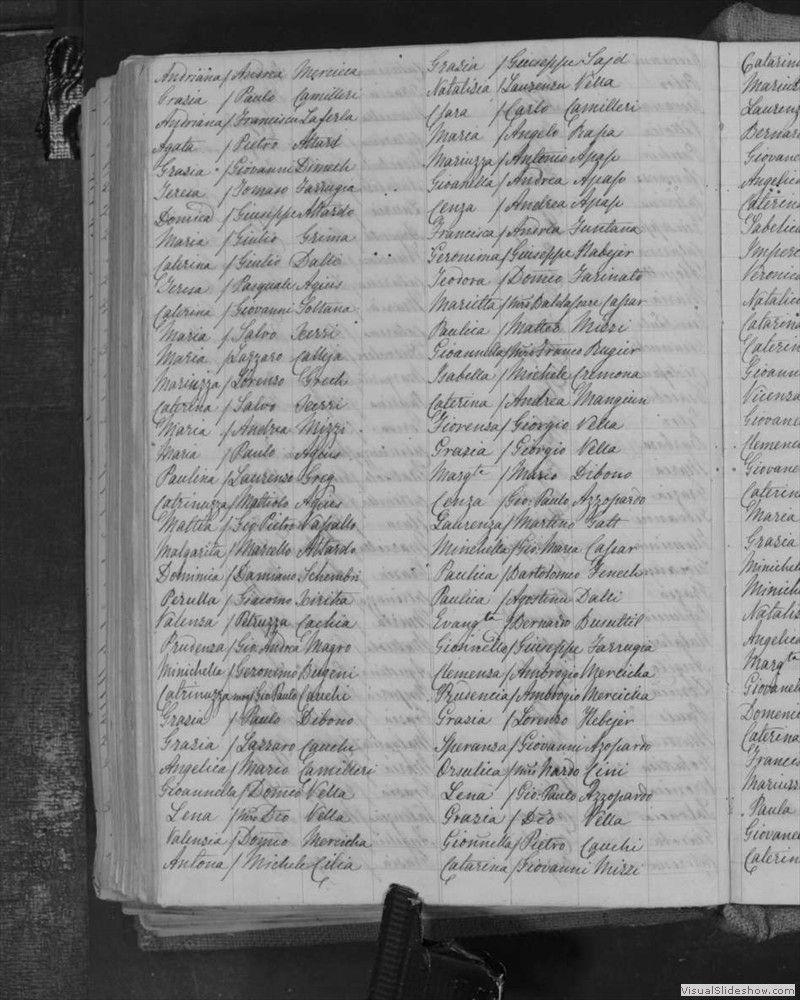 Andriana / Andrea Mercieca
Grasia / Paulo Camilleri
Andriana / Francisco Laferla
Agata / Pietro Attard
Grasia / Giovanni Dimech
Teresa / Tomaso Farrugia
Giuseppe Attardo
Maria / Giulio Grima
Caterina / Giulio Dalli
Teresa / Pasquale Agius
Caterina / Giovanni Soltana
Maria / Salvo Xerri
Maria / Lazzaro Calleja
Mariuzza / Lorenzo Grech
Caterina / Salvo Xerri
Maria / Andrea Mizzi
Maria / Paulo Agius
Paulina / Laurenso Greg
Catrinuzza / Mattiolo Agius
Mattea / Gio Pietro Vassallo
Malgarita / Marcello Attardo
Domimia / Damiano Schembri
Perulla / Giacomo
Valensa / Petruzza Cachia
Prudensa / Gio Andrea Magro
Minichella / Geronimo Bugeni
Catrinuzza Gio Paulo Cauchi
Grasia / Paulo Dibono
Grasia / Lazzaro Cauchi
Angelica / Mario Camilleri
Gioannella / Domeco Vella
Lena / Deo Vella
Valensia / Domco Mercieha
Antona / Michele Cilia
Grasia / Giuseppe Sajd
Natalisia / Laurensu Vella
Clara / Carlo Camilleri
Maria / Angelo
Mariuzza / Antonio Apap
Gioanella / Andrea Apap
Cenza / Andrea Apap
Francisca / Andrea Funtana
Geronima / Giuseppe Habejer
Teodora / Domco Farinato
Marietta / Baldassare Cassar
Paulica / Matteo Mizzi
Gioannella / Franco Bugier
Isabella / Michele Cremona
Caterina / Andrea Mangiun
Fiorensa / Giorgio Vella
Grasia / Giorgio Vella
Margta / Mario Dibono
Cenza / Gio: Paulo Azzopardo
Laurenza / Martino Galt
Minichella / Gio: Maria Cassar
Paulica / Bartolomeo Fenech
Paulica / Agostinu Dalli
Evangta / Bernardo Busuttil
Gioninella / Giuseppe Farrugia
Clemensa / Ambrogio Mercieha
Prusencia / Ambrogio Mercieha
Grasia / Lorenzo Hebejer
Speransa / Giovanni Azopardo
Orsulica / Nardo Cini
Lena / Gio: Paulo Azzopardo
Grazia / Deo Vella
Gionnella / Pietro Cauchi
Catarina / Giovanni Mizzi
Laurenz
Giovane
Angelica
Caterina
Veronica
Caterin
Vicensa
Giovane
Giovane
Caterin
Maria
Grasia
Minichell
Natalis
Angelica
Margta
Giovanel
Domeni
Caterina
Frances
Mariuzz
Paula
Giovanel
Caterin
VisualSlideshow.com